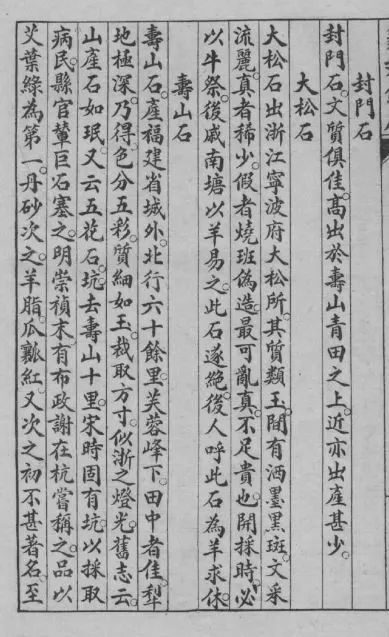 封門石
封門石。文質俱佳。高出於壽山青田之上。近亦出產甚少。
大松石
大松石出浙江寧波府大松所。其質類玉。間有洒墨黑斑。文采
流麗。真者稀少。假者燒斑偽造。最可亂真。不足貴也。開採時。必
以牛祭。後戚南塘以羊易之。此石遂絕。後人呼此石為羊求休。
壽山石
壽山石。產福建省城外。北行六十餘里。芙蓉峰下。田中者佳。犁
地極深。乃得。色分五彩。質細如玉。裁取方寸。似浙之燈光。舊志云。
山產石如珉。又云五花石坑。去壽山十里。宋時固有坑。以採取
病民。縣官輦巨石塞之。明崇禎末。有布政謝在杭嘗稱之。品以
艾葉綠為第一。丹砂次之。羊脂瓜瓤紅又次之。初不甚著名。至